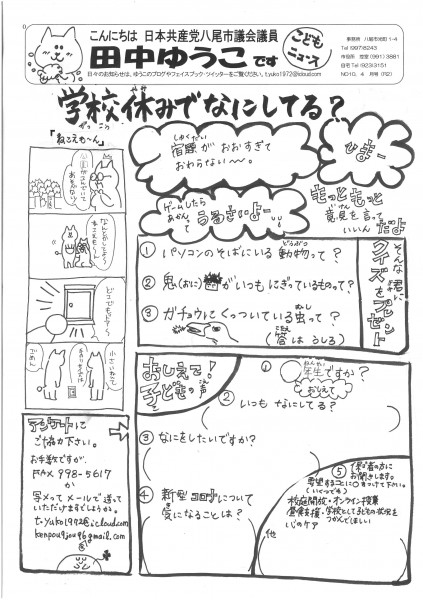 こんにちは 日本共産党八尾市議会議員
田中ゆうこです
こども
ニュース
日々のお知らせは、ゆうこのブログやフェイスブック・ツイッターをご覧ください。t.yuko1972@icloud.com
Tel (997)6243
市役所 控室 (991) 3881
自宅 Tel (923)3151
NO10. 4 月号 (R2)
がっこう
学校休みでなにしてる?
「ねこえもーん」
なんとかしてよ～
ねこえもーん
どこでもドア～
小さいねえ
ごめん
しゅくだい
宿題がおおすぎて
おわらない～。
ひまー
ゲームしたら
あかんて
うるさいよー
もっともっと
意見を言って
いいんだよ
そんな君に
クイズをプレゼント
① パソコンのそばにいる動物って?
② 鬼(おに)がいつもにぎっているものって?
③ ガチョウにくっついている虫って?
(答は うしろ)
おしえて!
子どもの声
① 年生ですか?
おしえて
② いつも なにしてる?
③ なにをしたいですか?
④ 新型コロナについて
気になることは?
⑤ 保護者の方に
お聞きします
要望することに○をつけて下さい。
(いくつでも)
校庭開放・オンライン授業
昼食支援・学校として子どもの状況を
つかんでほしい
心のケア
他
アンケートに
ご協力下さい。
お手数ですが
FAX 998-5617
か
写メって メールで送って
いただけますでしょうか。
t.yuko1972@icloud.com
kenpou9jou96@gmail.com